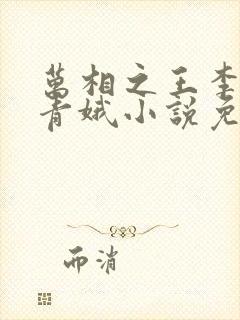 萬相之王李
青娥小說免
而消